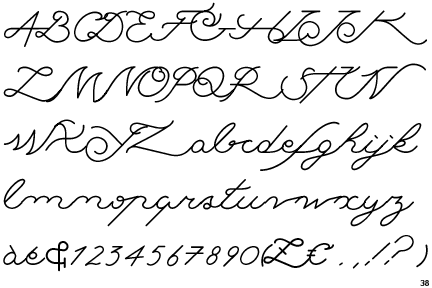 ABCDEFGHIJK
LMNOPQRSTUV
WXYZ abcdefghijk
lmnopqrstuvwxyz
àe&1234567890(£€.,!?)
38